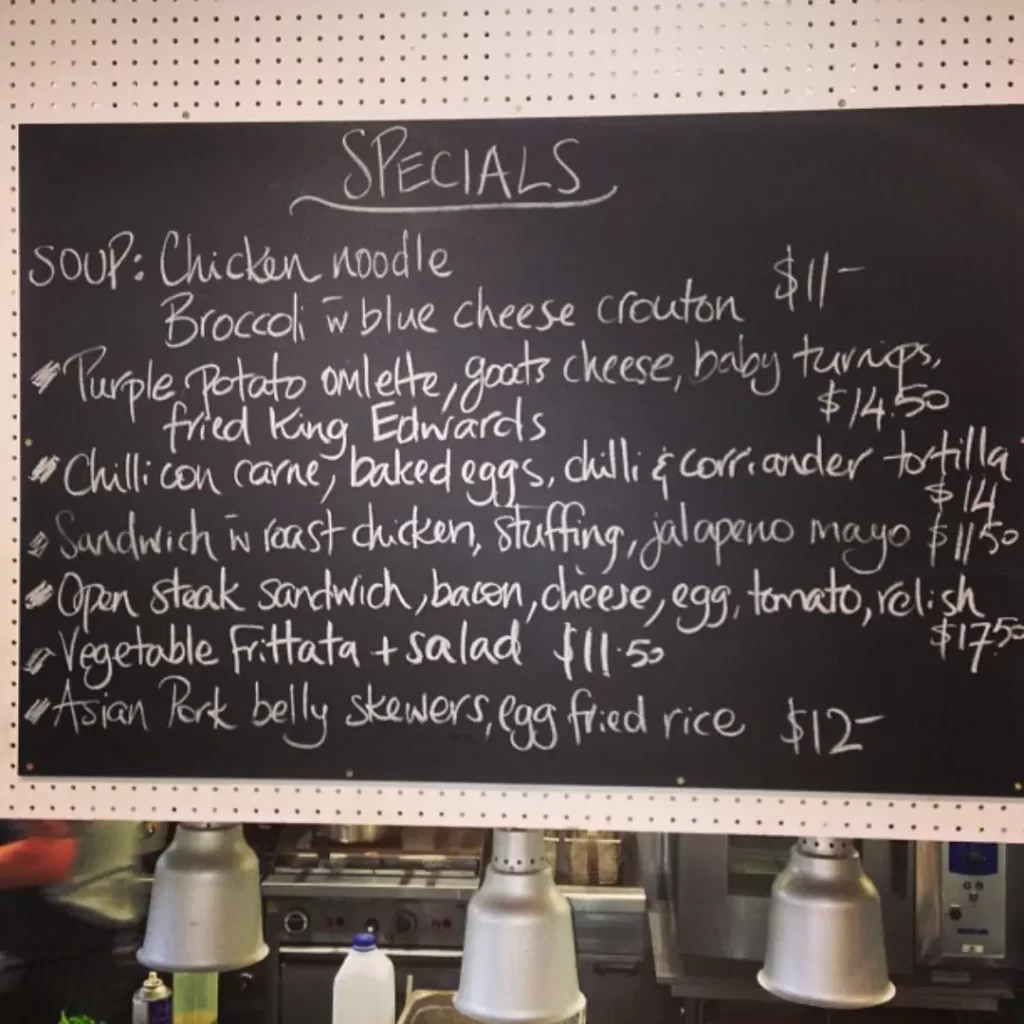 SPECIALS
SOUP: Chicken noodle
Broccoli w̄ blue cheese crouton $11-
Purple potato omlette, goats cheese, baby turnips,
fried King Edwards $14.50
Chilli con carne, baked eggs, chilli & corriander tortilla
$14
Sandwich w̄ roast chicken, stuffing, jalapeno mayo $1150
Open steak sandwich, bacon, cheese, egg, tomato, relish
$17.50
Vegetable Frittata + salad $11.50
Asian Pork belly skewers, egg fried rice $12-